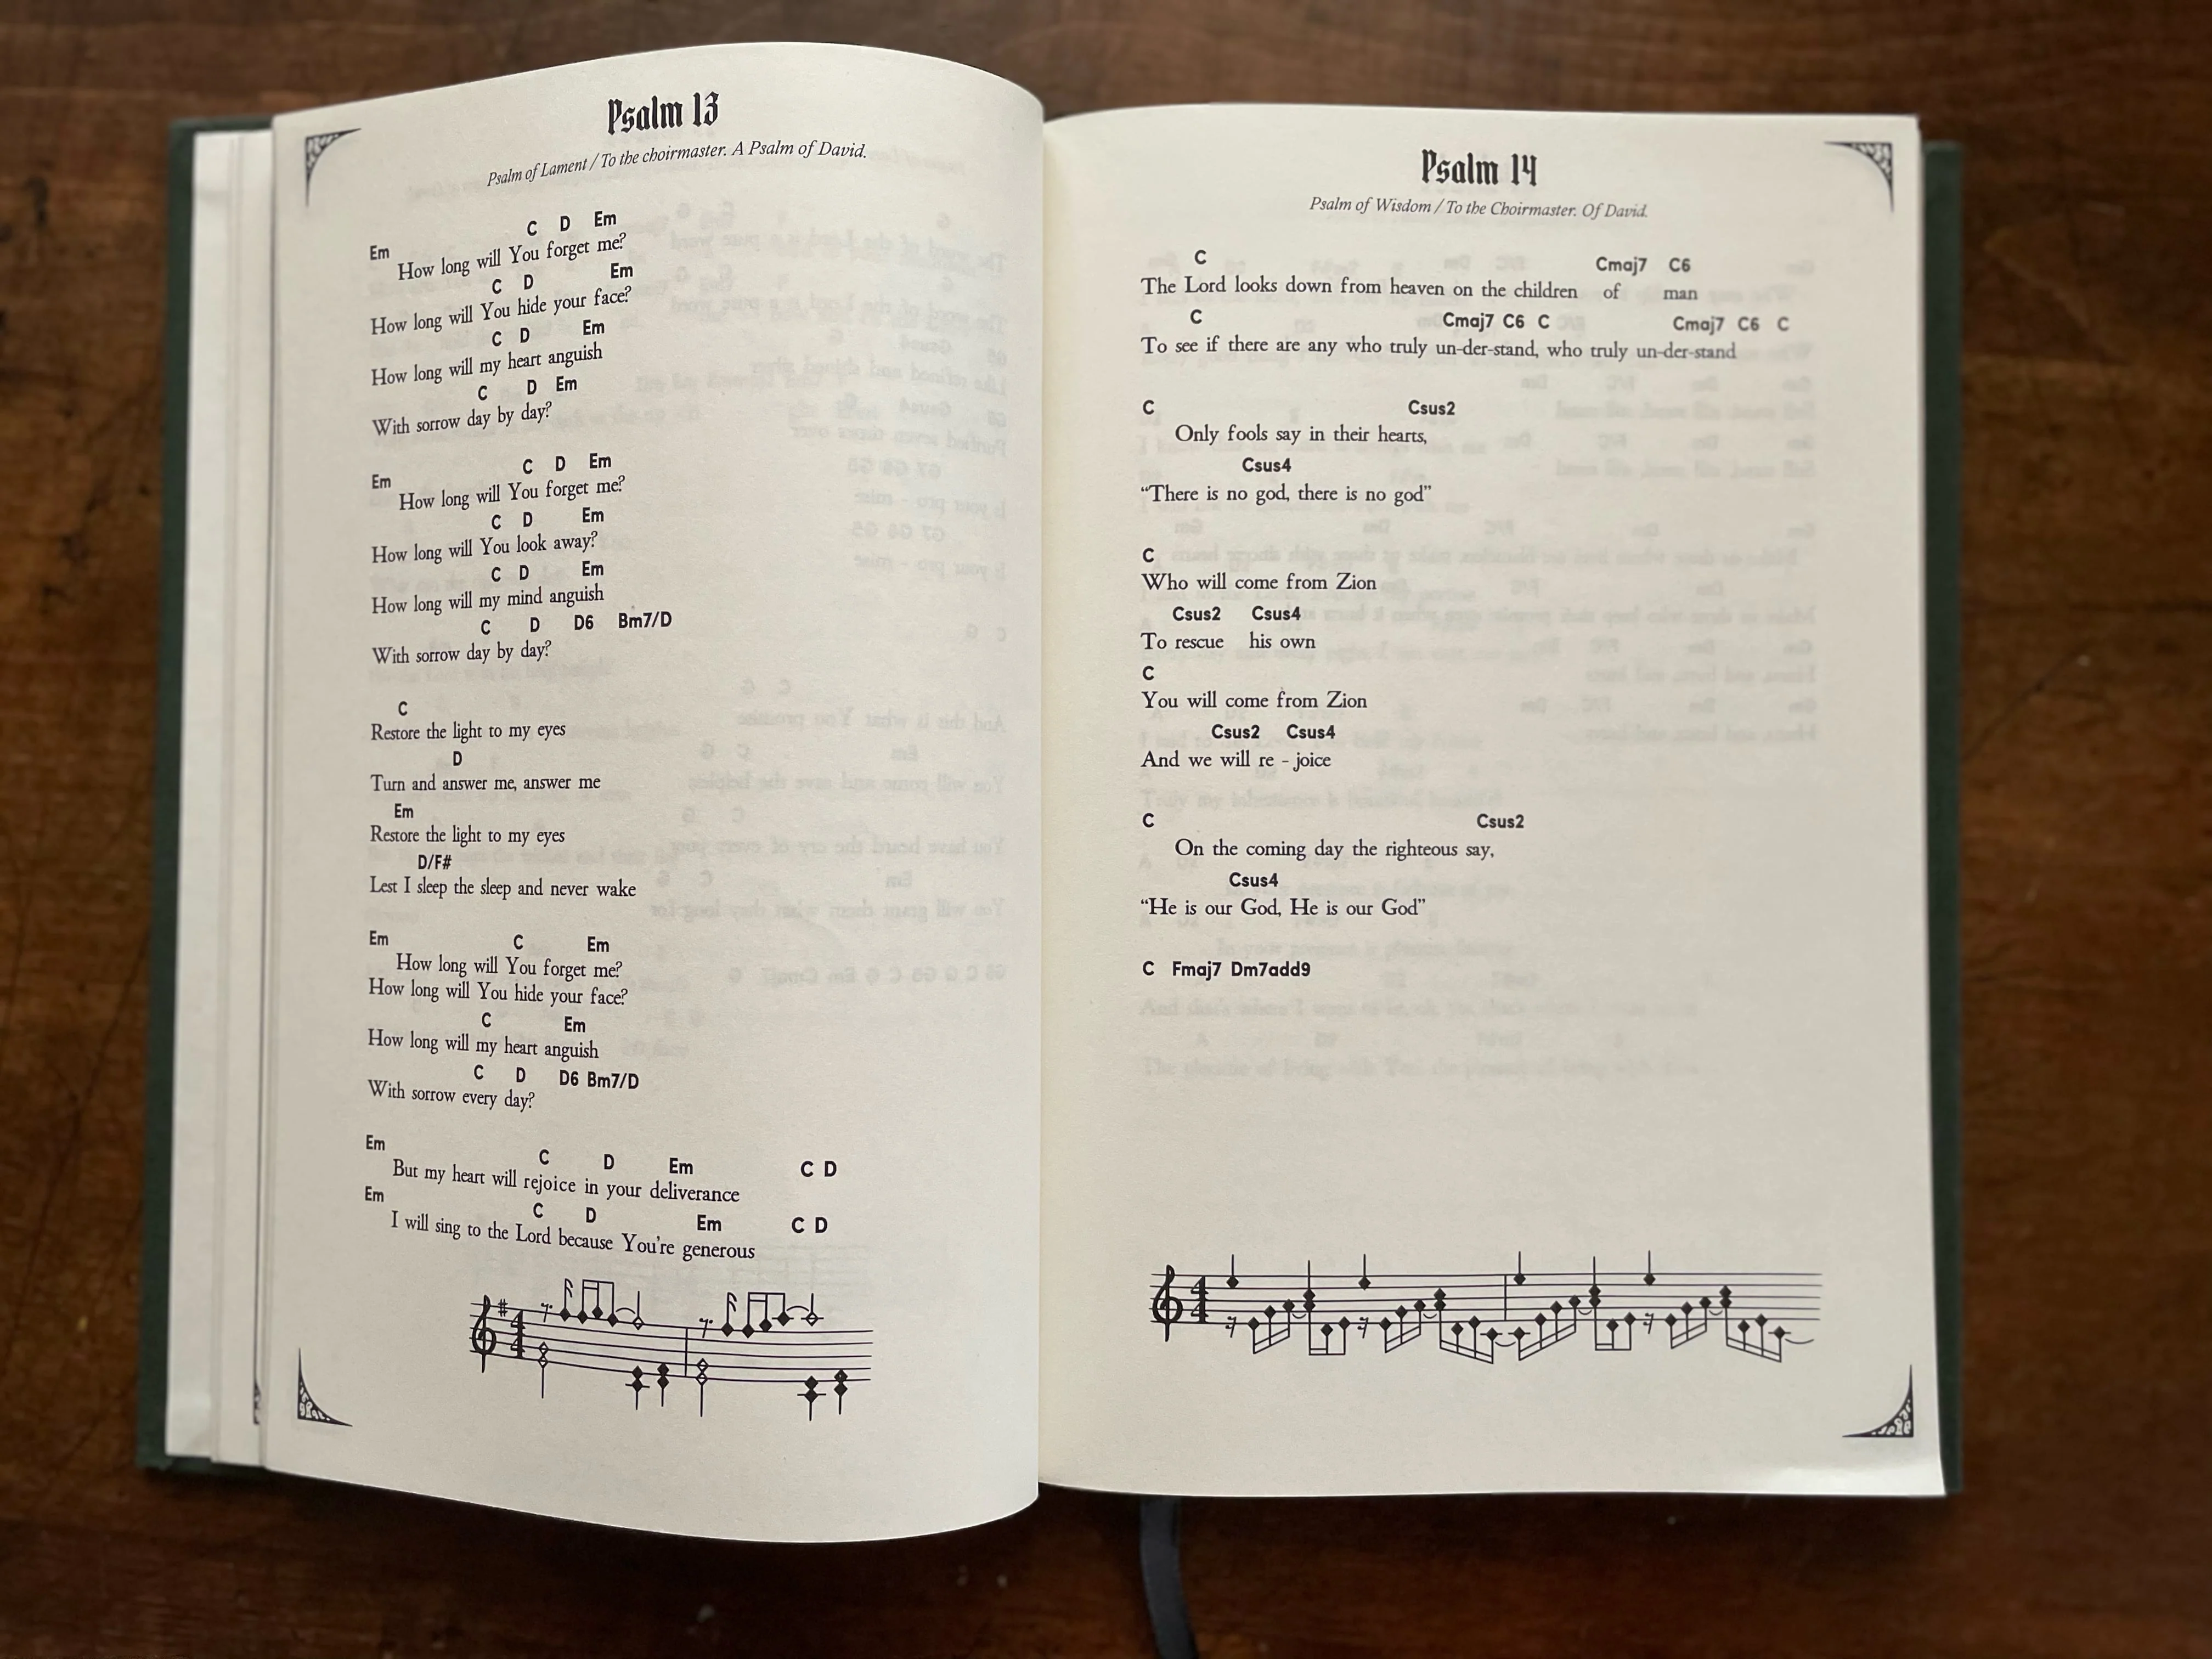 Psalm 13
Psalm of Lament / To the choirmaster. A Psalm of David.
Em C D Em
How long will You forget me?
C D Em
How long will You hide your face?
C D Em
How long will my heart anguish
C D Em
With sorrow day by day?
Em C D Em
How long will You forget me?
C D Em
How long will You look away?
C D Em
How long will my mind anguish
C D D6 Bm7/D
With sorrow day by day?
C
Restore the light to my eyes
D
Turn and answer me, answer me
Em
Restore the light to my eyes
D/F#
Lest I sleep the sleep and never wake
Em C Em
How long will You forget me?
How long will You hide your face?
C Em
How long will my heart anguish
C D D6 Bm7/D
With sorrow every day?
Em C D Em C D
But my heart will rejoice in your deliverance
Em C D Em C D
I will sing to the Lord because You're generous
4
4
Psalm 14
Psalm of Wisdom / To the Choirmaster. Of David.
C Cmaj7 C6
The Lord looks down from heaven on the children of man
C Cmaj7 C6 C Cmaj7 C6 C
To see if there are any who truly un-der-stand, who truly un-der-stand
C Csus2
Only fools say in their hearts,
Csus4
“There is no god, there is no god”
C
Who will come from Zion
Csus2 Csus4
To rescue his own
C
You will come from Zion
Csus2 Csus4
And we will re - joice
C Csus2
On the coming day the righteous say,
Csus4
“He is our God, He is our God”
C Fmaj7 Dm7add9
4
4